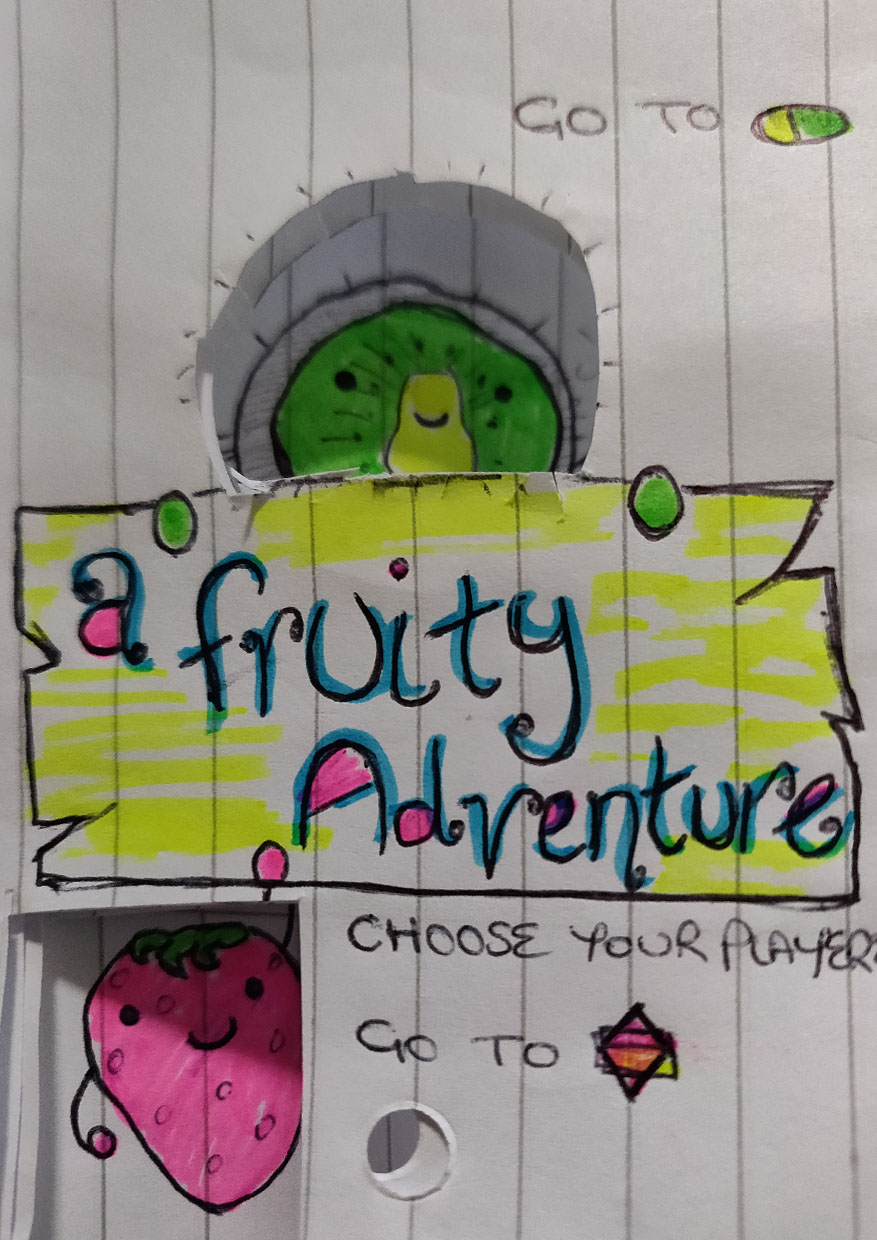 GO TO
a fruity
Adventure
CHOOSE YOUR PLAYER
GO TO